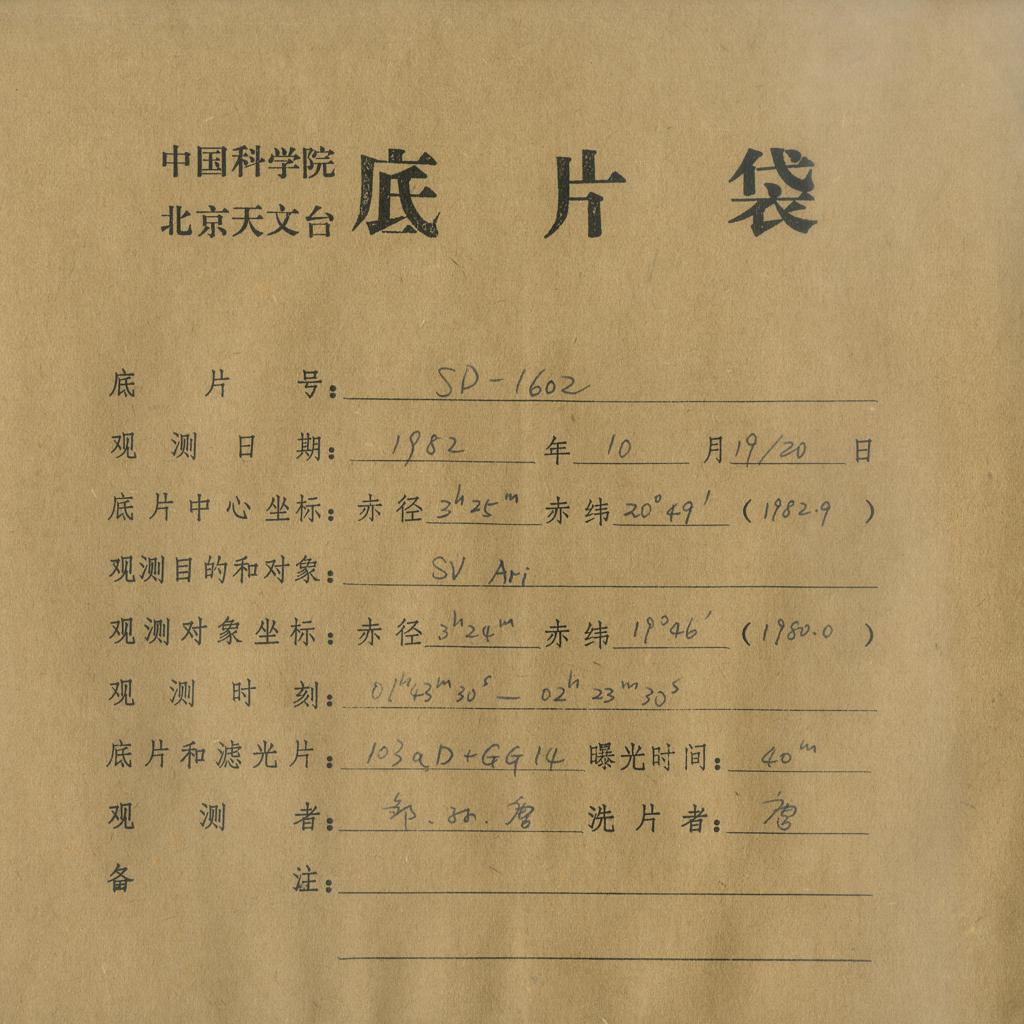 中国科学院
北京天文台
底片袋
底片号: SD-1602
观测日期: 1982 年 10 月 19/20 日
底片中心坐标: 赤径 3h25m 赤纬 20°49′ (1982.9)
观测目的和对象: SV Ari
观测对象坐标: 赤径 3h24m 赤纬 19°46′ (1980.0)
观测时刻: 01h43m30s — 02h23m30s
底片和滤光片: 103aD+GG14 曝光时间: 40m
观测者: 邹.孙. 洗片者:
备注: